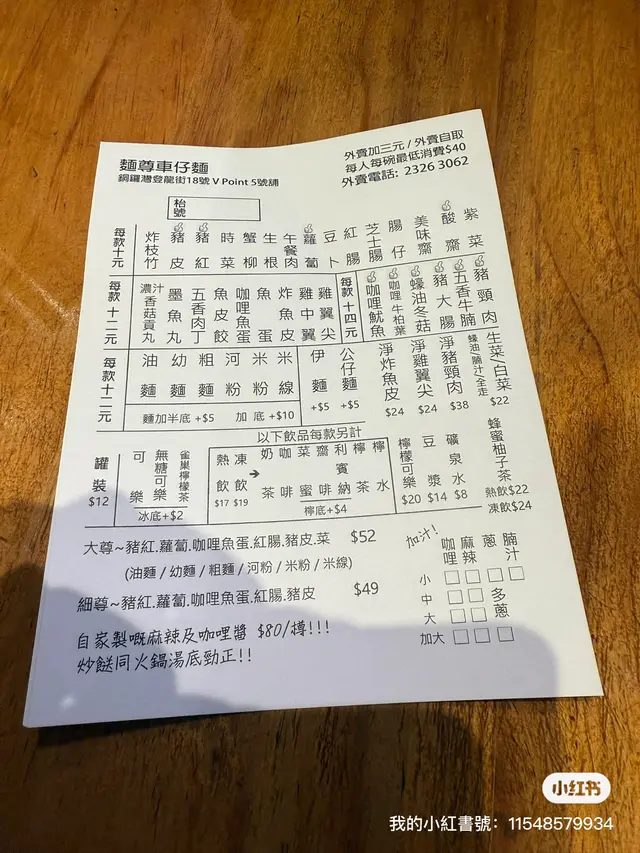 麵尊車仔麵
銅鑼灣登龍街18號 V Point 5號舖
外賣加三元 / 外賣自取
每人每碗最低消費$40
外賣電話: 2326 3062
枱號
每款十元
炸枝竹
豬皮
豬紅
時菜
蟹柳
生根
午餐肉
蘿蔔
豆卜
紅腸
芝士腸
腸仔
美味齋
酸齋
紫菜
每款十二元
濃汁香菇貢丸
墨魚丸
五香肉丁
魚皮餃
咖哩魚蛋
魚蛋
炸魚皮
雞中翼
雞翼尖
每款十四元
咖哩魷魚
咖哩牛柏葉
蠔油冬菇
豬大腸
五香牛腩
豬頸肉
每款十二元
油麵
幼麵
粗麵
河粉
米粉
米線
麵加半底 +$5
加底 +$10
伊麵 +$5
公仔麵 +$5
淨炸魚皮 $24
淨雞翼尖 $24
淨豬頸肉 $38
蠔油/腩汁/全走
生菜/白菜 $22
以下飲品每款另計
罐裝 $12
可樂
無糖可樂
雀巢檸檬茶
冰底+$2
熱飲 $17
→
凍飲 $19
奶茶
咖啡
菜蜜
齋啡
利賓納
檸茶
檸水
檸底+$4
檸檬可樂 $20
豆漿 $14
礦泉水 $8
蜂蜜柚子茶
熱飲$22
凍飲$24
大尊~豬紅.蘿蔔.咖哩魚蛋.紅腸.豬皮.菜 $52
(油麵 / 幼麵 / 粗麵 / 河粉 / 米粉 / 米線)
細尊~豬紅.蘿蔔.咖哩魚蛋.紅腸.豬皮 $49
自家製嘅麻辣及咖哩醬 $80/樽!!!
炒餸同火鍋湯底勁正!!
加汁!
咖哩 麻辣 蔥 腩汁
小
中 多蔥
大
加大
小红书
我的小紅書號：11548579934